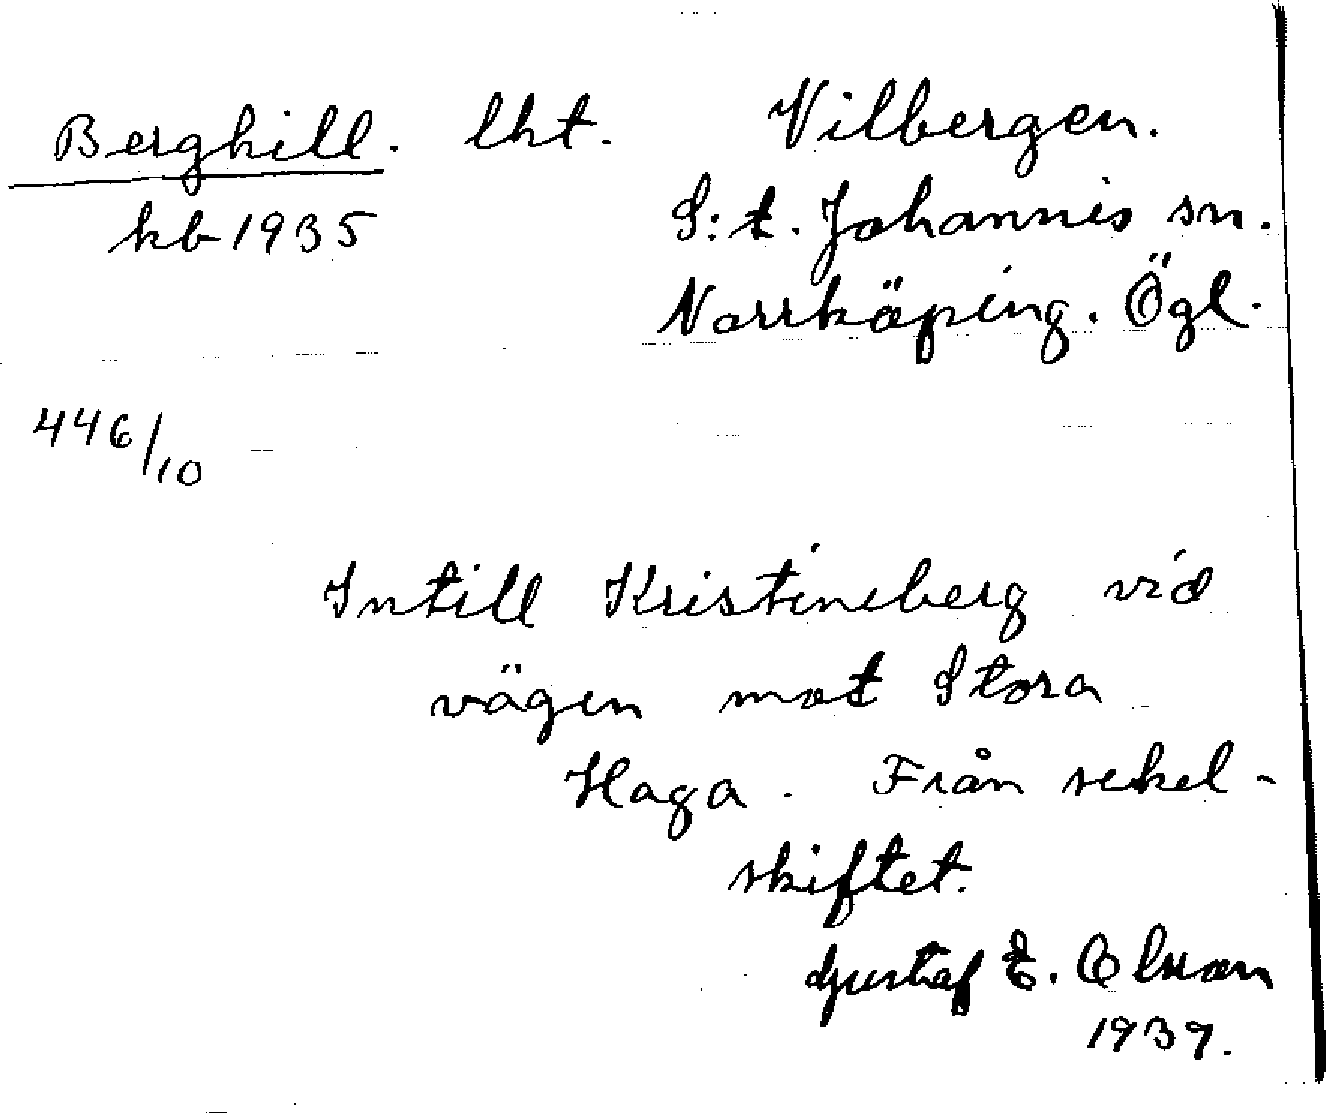 Berghill. lht. Vilbergen.
kb 1935 S:t. Johannis sn.
Norrköping. Ögl.
446/10
Intill Kristineberg vid
vägen mot Stora
Haga. Från sekel-
skiftet.
Gustaf E. Olsson
1939.